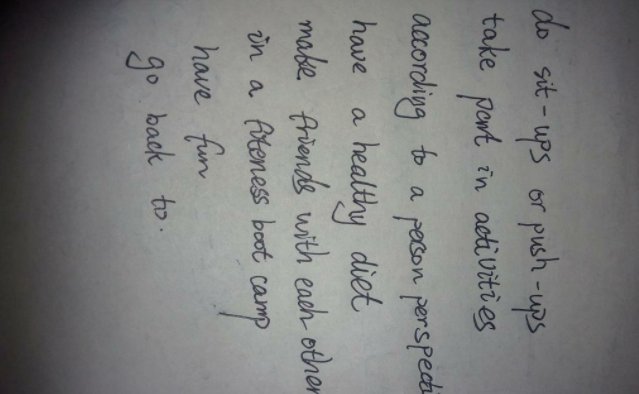 do sit-ups or push-ups
take part in activities
according to a person perspecti
have a healthy diet
make friends with each other
in a fiteness boot camp
have fun
go back to.